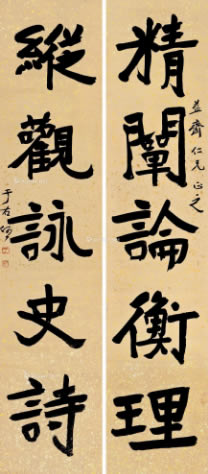 精闡論衡理
益齋仁兄正之
縱觀詠史詩
于右任